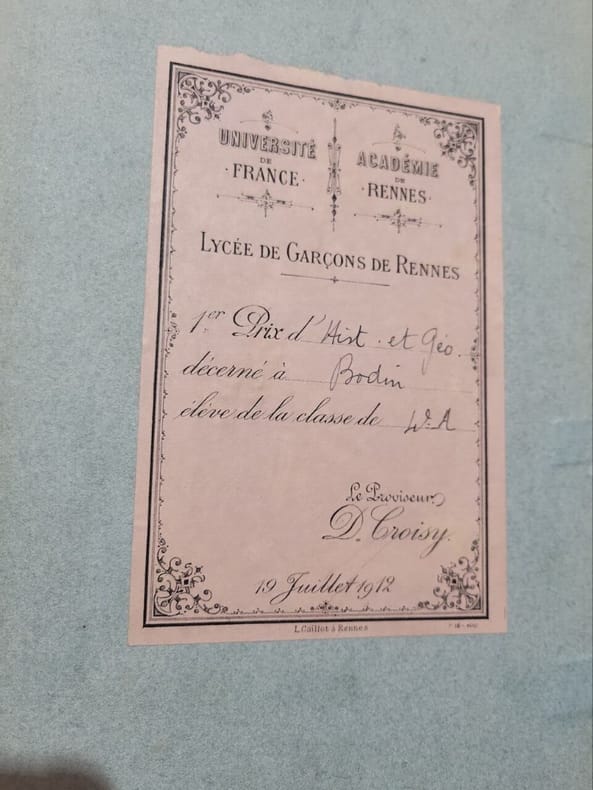 UNIVERSITÉ
DE
·FRANCE·
ACADÉMIE
DE
·RENNES·
LYCÉE DE GARÇONS DE RENNES
1er Prix d' Hist. et Géo.
décerné à Bodin
élève de la classe de
Le Proviseur
D. Croisy.
19 Juillet 1912
L. Caillot à Rennes